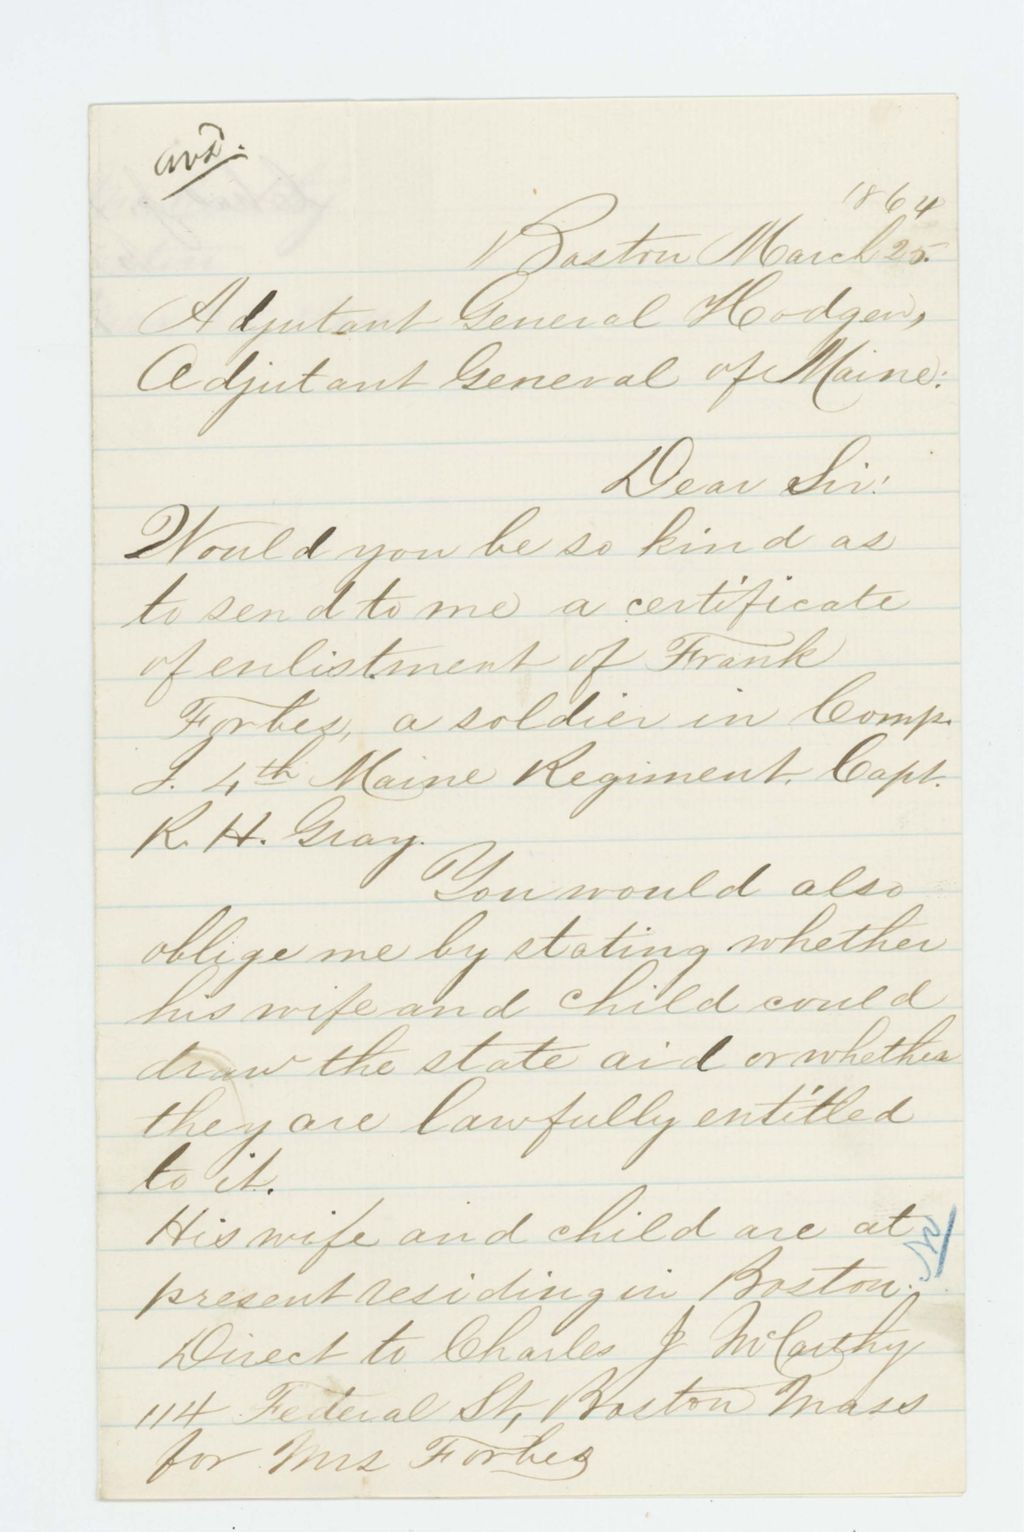 ansd.
1864
Boston March 25.
Adjutant General Hodgen,
Adjutant General of Maine:
Dear Sir:
Would you be so kind as
to send to me a certificate
of enlistment of Frank
Forbes, a soldier in Comp.
I. 4th Maine Regiment. Capt.
R. H. Gray.
You would also
oblige me by stating whether
his wife and child could
draw the state aid or whether
they are lawfully entitled
to it.
His wife and child are at
present residing in Boston.
Direct to Charles J McCarthy
114 Federal St, Boston Mass
for Mrs Forbes